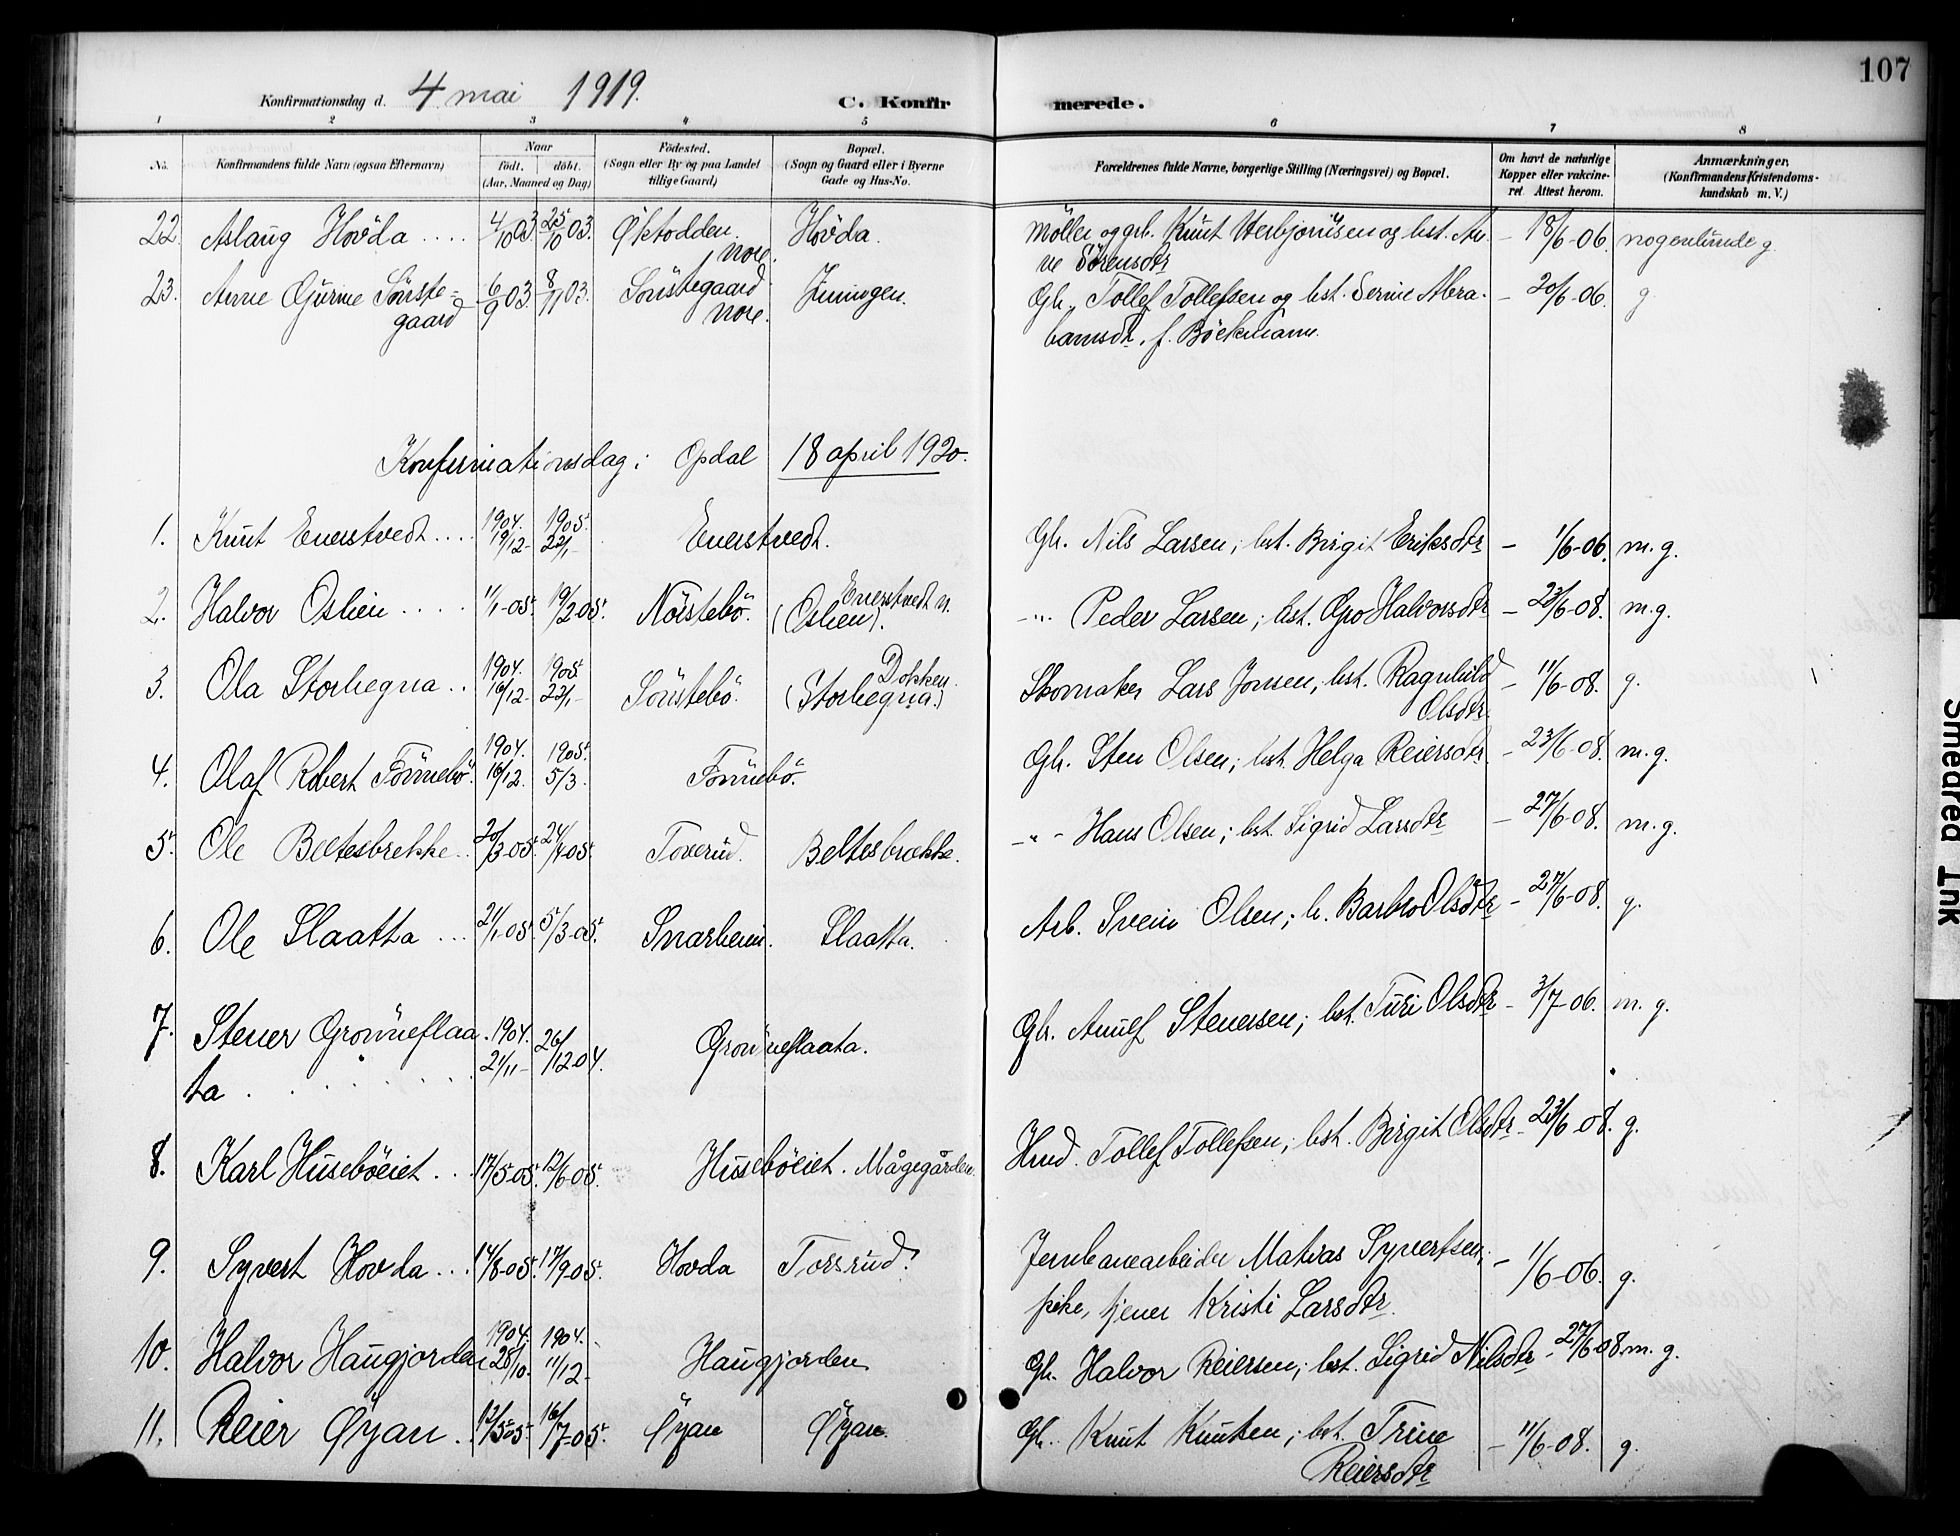 107
Konfirmationsdag d. 4 mai 1919.
C. Konfirmerede.
1 2 3 4 5 6 7 8
No. Konfirmandens fulde Navn (ogsaa Efternavn)
Naar født. døbt. (Aar, Maaned og Dag)
Födested. (Sogn eller By og paa Landet tillige Gaard)
Bopæl. (Sogn og Gaard eller i Byerne Gade og Hus-No.
Forældrenes fulde Navne, borgerlige Stilling (Næringsvei) og Bopæl.
Om havt de naturlige Kopper eller vakcineret. Attest herom.
Anmærkninger, (Konfirmandens Kristendomskundskab m. V.)
22. Aslaug Hovda .... 4/10 03. 25/10 03. Øktodden. Nore. Hovda. Möller og gb. Knut Herbjørnsen og hst. An- – 18/6-06. nogenlunde g.
ne Sørensdtr
23. Anne Gurine Sönste- 6/9 03. 8/11 03. Sönstegaard Nore. Gb. Tollef Tollefsen og hst. Serine Abra- – 20/6-06. g.
gaard
hamsdtr. f. Böckmann.
Konfirmationsdag i Opdal 18 april 1920.
1. Knut Enerstvedt .... 1904. 19/12- 1905. 22/1- Enerstvedt. Gb. Nils Larsen; hst. Birgit Eriksdtr – 1/6-06. m. g.
2. Halvor Oslien .... 11/1-05. 19/2 05. Nörstebö. Enerstvedt n. (Oslien). -"- Peder Larsen; hst. Gro Halvorsdtr – 23/6-08. m. g.
3. Ola Storhegna .. 1904. 16/12- 1905. 22/1- Sönstebö. Dokken. (Storhegna.) Skomaker Lars Jonsen, hst. Ragnhild – 11/6-08. g.
Olsdtr.
4. Olaf Robert Fönnebö. 1904. 16/12. 1905. 5/3. Fönnebö. Gb. Sten Olsen; hst. Helga Reiersdtr – 23/6-08. m. g.
5. Ole Beltesbrekke .. 20/3-05. 24/4-05. Toverud. Beltesbrekke. -"- Hans Olsen; hst. Sigrid Larsdtr – 27/6-08. m. g.
6. Ole Slaatta ... 21/1-05. 5/3-05. Snarheim. Slaatta. Arb. Svein Olsen; h. Barbro Olsdtr – 27/6-08. g.
7. Stener Grönneflaa- 1904. 21/11- 26/12-04. Grönneflaata. Gb. Anulf Stenersen; hst. Turi Olsdtr – 3/7-06. m. g.
ta
8. Karl Huseböeiet ... 17/5-05. 12/6-05. Huseböeiet. Mågegården Hmd. Tollef Tollefsen; hst. Birgit Olsdtr – 23/6-08. g.
9. Syvert Hovda ... 14/8-05. 17/9-05. Hovda Torsrud. Jernbanearbeider Matias Syvertsen; – 1/6-06. g.
pike, tjener Kristi Larsdtr.
10. Halvor Haugjorden 1904. 28/10. 1904. 11/12- Haugjorden Gb. Halvor Reiersen; hst. Sigrid Nilsdtr – 27/6-08 m. g.
11. Reier Øyan .. 12/5-05. 16/7-05. Øyan Øyan. Gb. Knut Knutsen; hst. Trine – 11/6-08. g.
Reiersdtr
Smeared Ink